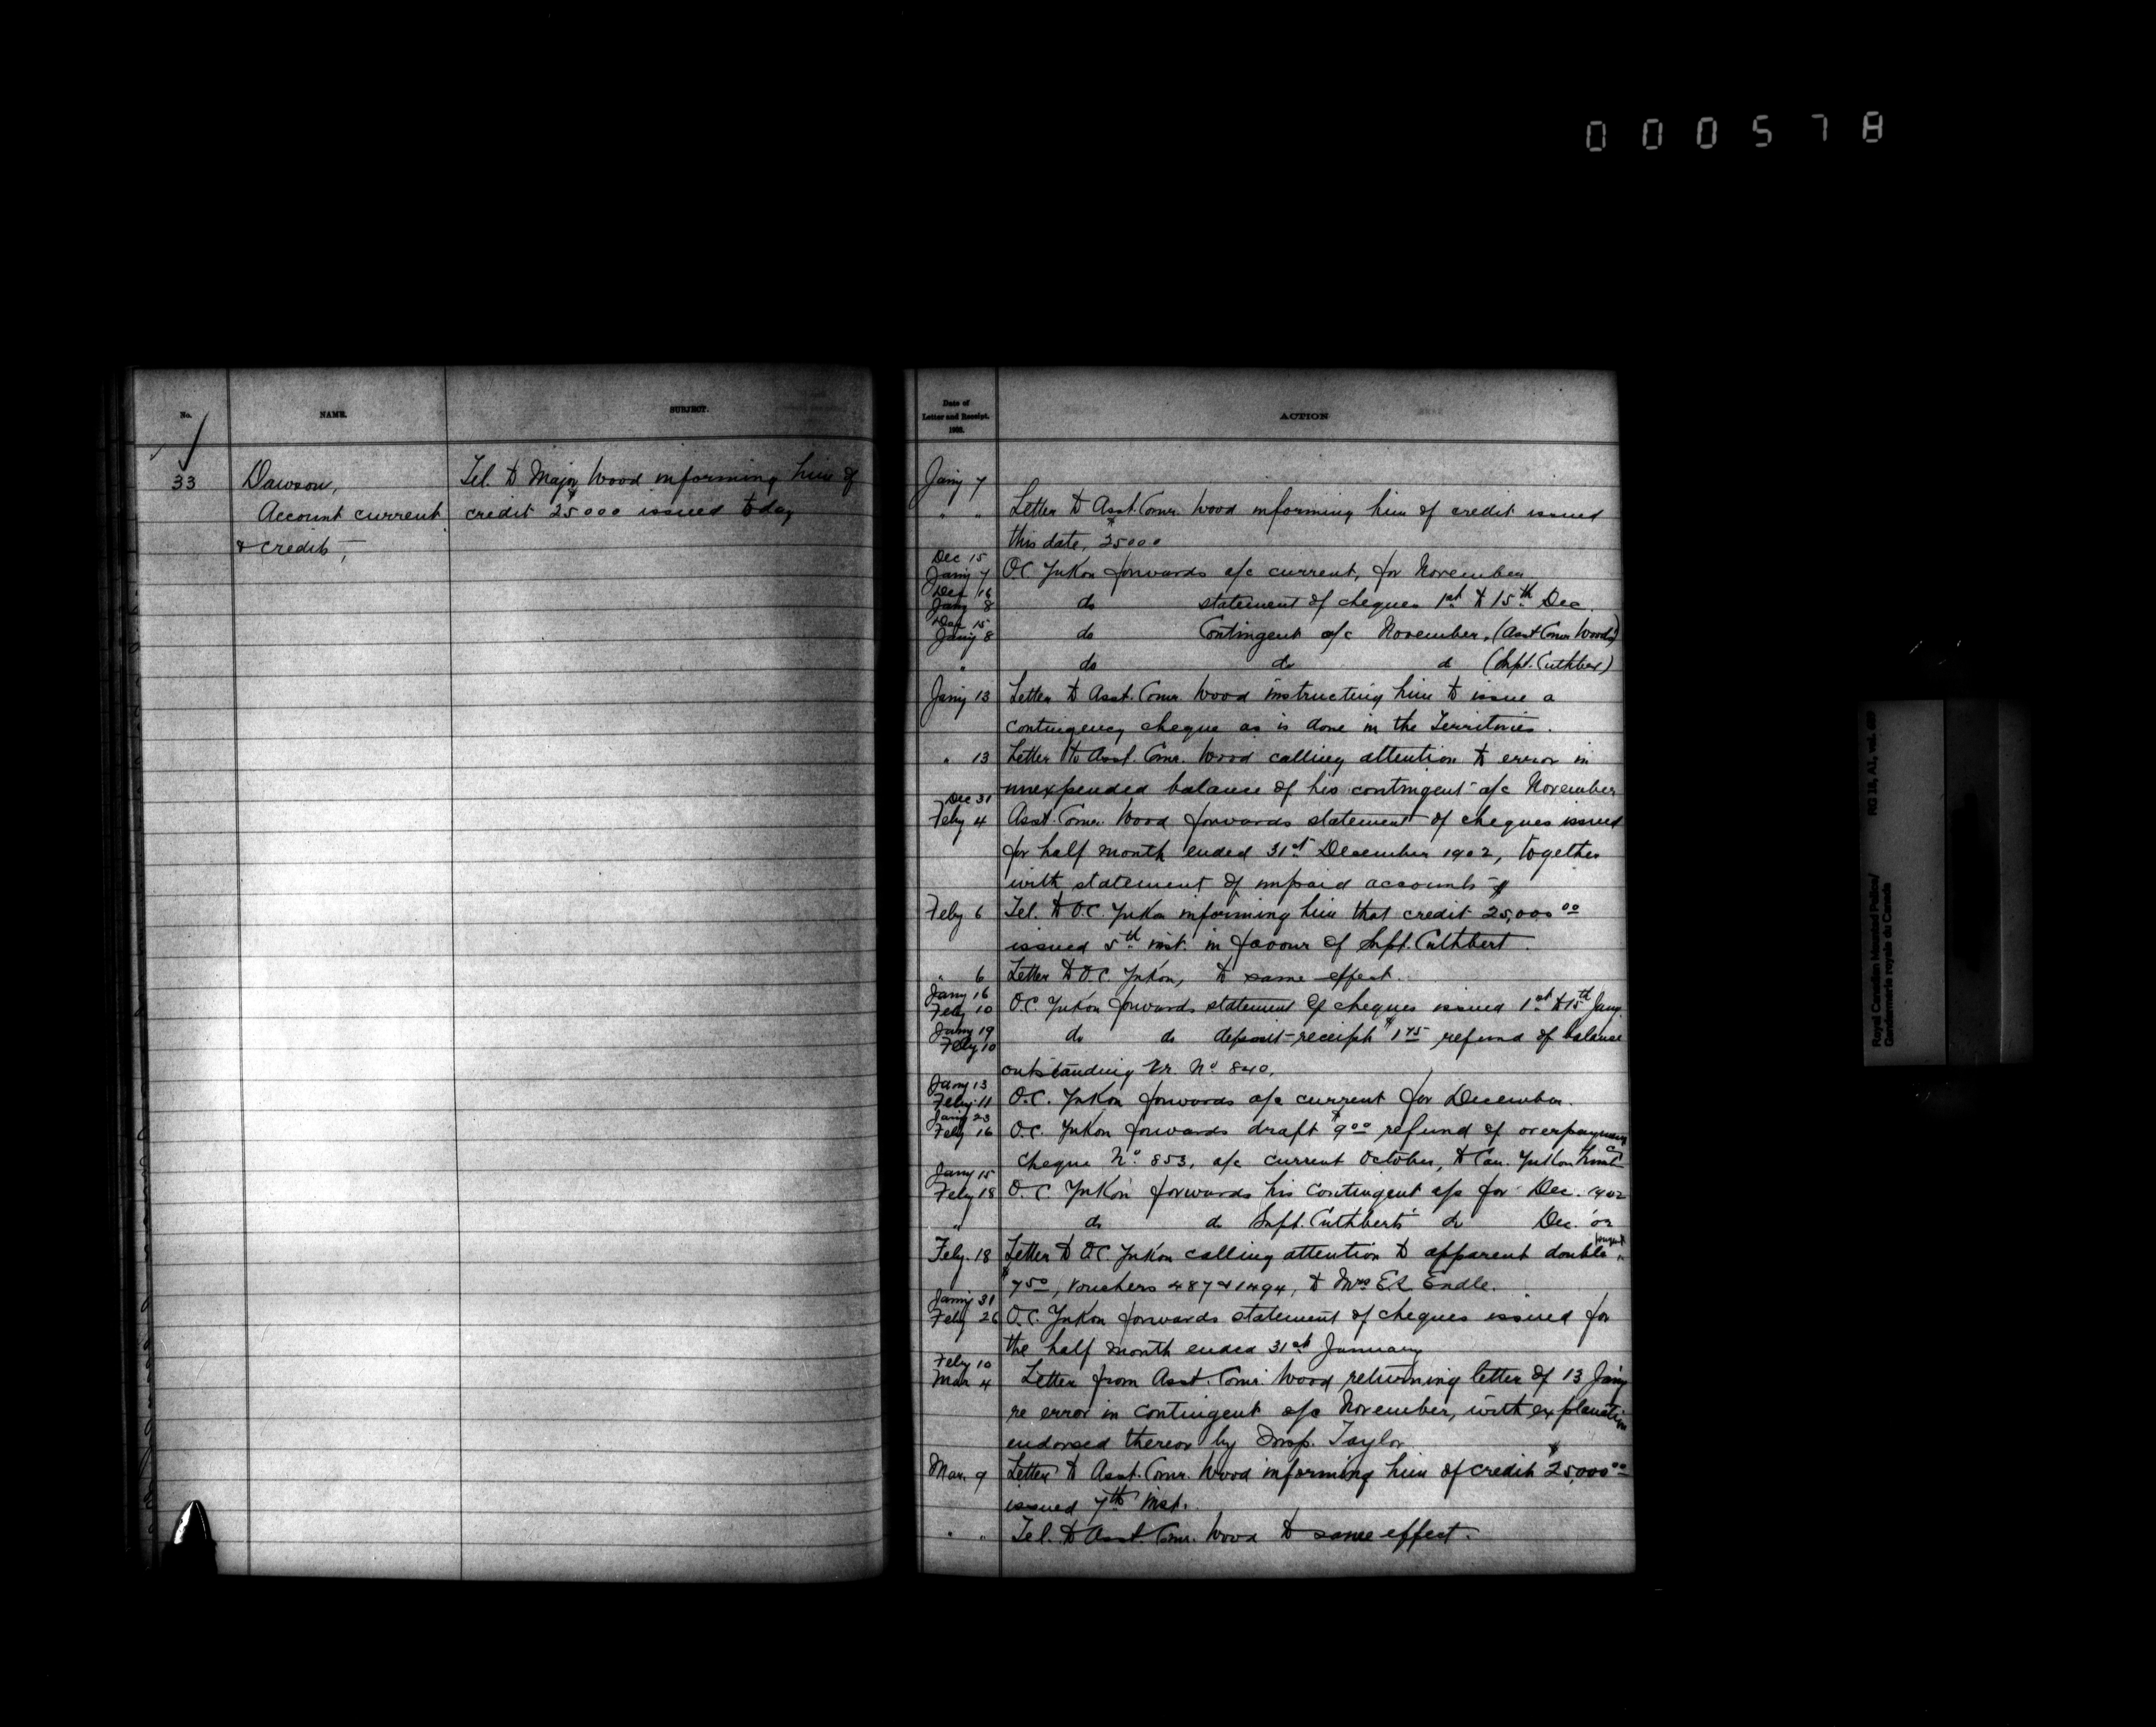 000578
No.
NAME.
SUBJECT.
33
Dawson,
Account current
& credits,
Tel. to Major Wood informing him of
credit $25000 issued today
Date of
Letter and Receipt.
1903.
ACTION
Jany 7
" " Letter to Asst. Comr. Wood informing him of credit issued
this date, $25000
Dec 15
Jany 7 O.C. Yukon forwards a/c current, for November
Dec 16
Jany 8 do statement of cheques 1st to 15th Dec.
Dec 15
Jany 8 do Contingent a/c November, (Asst Comr Wood's)
" do do d (Supt. Cuthbert)
Jany 13 Letter to Asst. Comr. Wood instructing him to issue a
contingency cheque as is done in the Territories.
" 13 Letter to Asst. Comr. Wood calling attention to error in
unexpended balance of his contingent a/c November
Dec 31
Feby 4 Asst. Comr. Wood forwards statement of cheques issued
for half month ended 31st December 1902, together
with statement of unpaid accounts
Feby 6 Tel. to O.C. Yukon informing him that credit $25,000 00
issued 5th inst. in favour of Supt. Cuthbert.
" 6 Letter to O.C. Yukon, to same effect.
Jany 16
Feby 10 O.C. Yukon forwards statement of cheques issued 1st to 15th Jany.
Jany 19
Feby 10 do do deposit-receipt $1 75 refund of balance
outstanding Vr. No. 840.
Jany 13
Feby. 11 O.C. Yukon forwards a/c current for December.
Jany 23
Feby 16 O.C. Yukon forwards draft $9 00 refund of overpayment
cheque No. 853, a/c current October, to Can. Yukon
Jany 15
Feby 18 O.C. Yukon forwards his contingent a/c for Dec. 1902
" do do Supt. Cuthbert's do Dec. '02
Feby. 18 Letter to O.C. Yukon calling attention to apparent double payment
$7 50, vouchers 487 & 1494, to Mrs E.L. Endle.
Jany 31
Feby 26 O.C. Yukon forwards statement of cheques issued for
the half month ended 31st January
Feby 10
Mar 4 Letter from Asst. Comr. Wood returning letter of 13 Jany
re error in contingent a/c November, with explanation
endorsed thereon by Insp. Taylor
Mar. 9 Letter to Asst. Comr. Wood informing him of credit $25,000 00
issued 7th inst.
" " Tel. to Asst. Comr. Wood to same effect.
Royal Canadian Mounted Police/
Gendarmerie royale du Canada
RG 18, A1, vol.